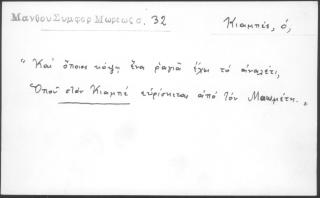 Μανθου Συμφορ Μωρεως σ. 32
Κιαμπές, ὁ,
"Καὶ ὅποιος κόψῃ ἕνα ραγιᾶ ἔχει τό ἀναλέτι,
Ὁποῦ στὸν Κιαμπέ εὑρίσκεται ἀπό τὸν Μαχμέτη."